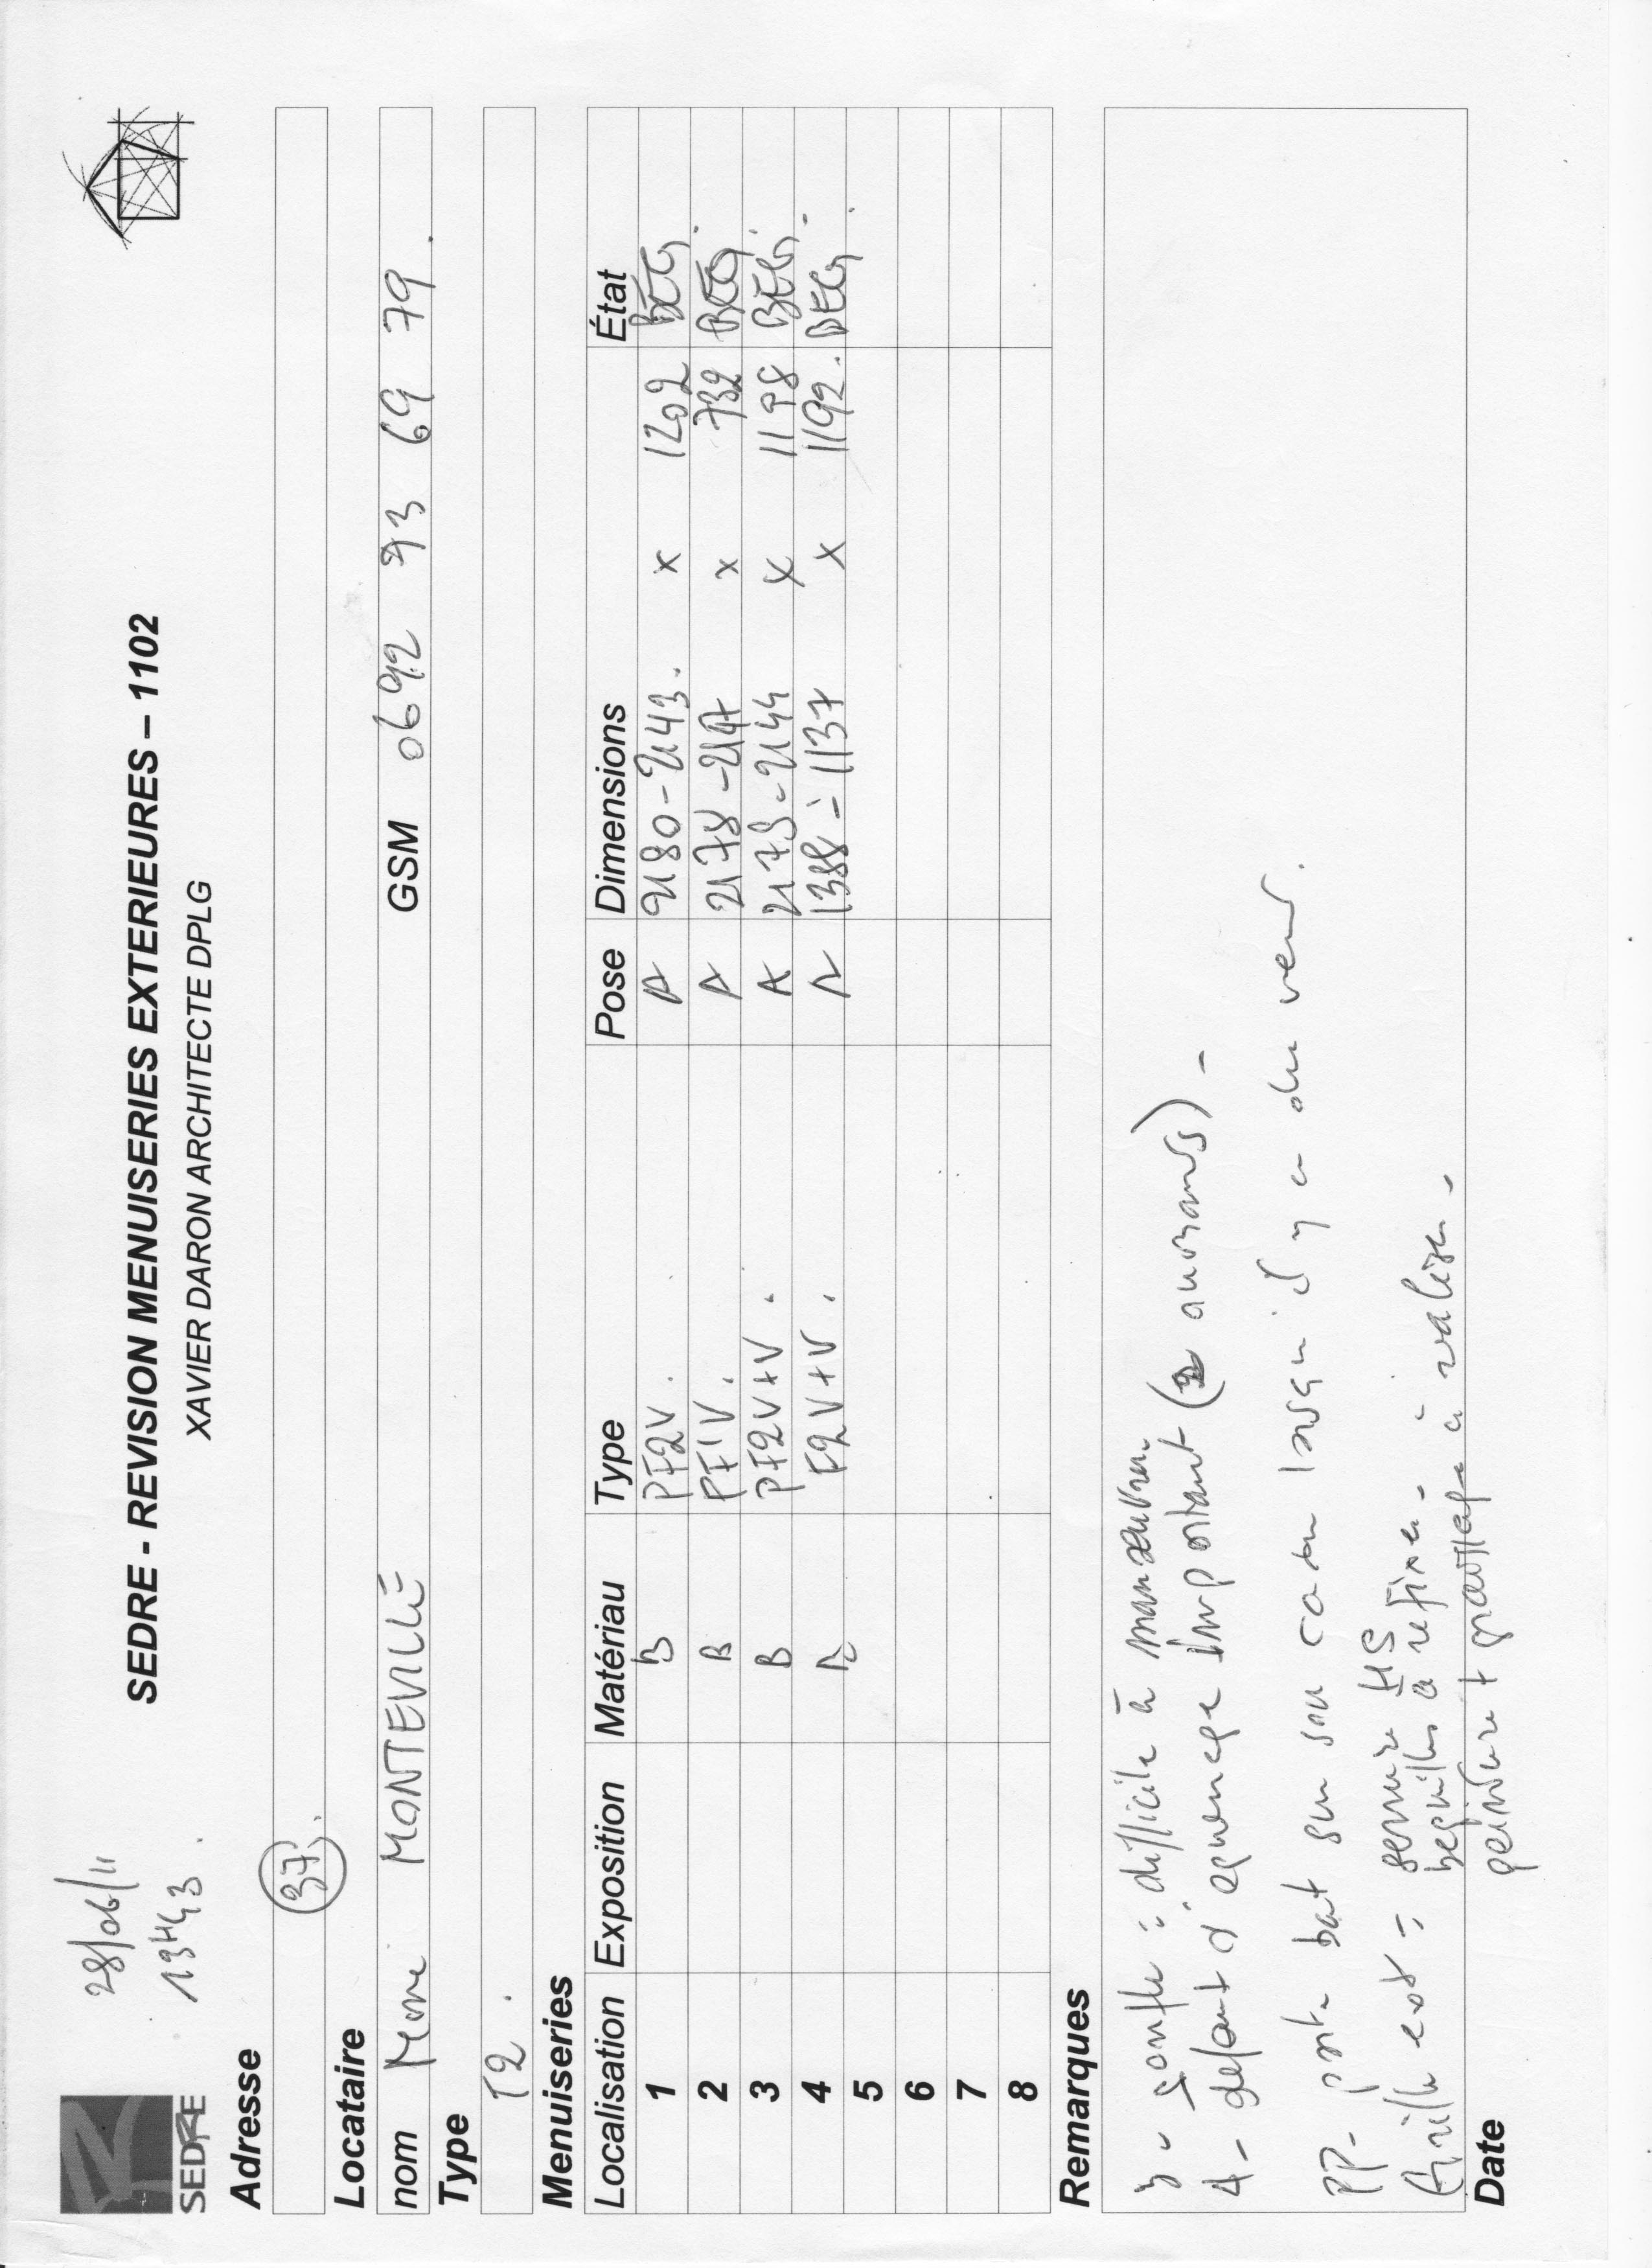 28/06/11
13H43.
SEDRE
SEDRE - REVISION MENUISERIES EXTERIEURES – 1102
XAVIER DARON ARCHITECTE DPLG
Adresse
37.
Locataire
nom Mme MONTEVILLE GSM 0692 93 69 79.
Type
T2.
Menuiseries
Localisation Exposition Matériau Type Pose Dimensions État
1 B PF2V. A 2180-2143. x 1202
2 B PF1V. A 2178-2147 x 732
3 B PF2V+V. A 2173-2144 x 1198
4 B F2V+V. A 1388-1137 x 1192.
5
6
7
8
Remarques
3 - gonfle : difficile à manœuvrer
4 - défaut d'équerrage important (2 ouvrants) -
PP- porte bat sur son cadre lorsqu'il y a du vent.
Grille ext = serrure HS
béquilles à refixer -
peinture + graissage à réaliser -
Date